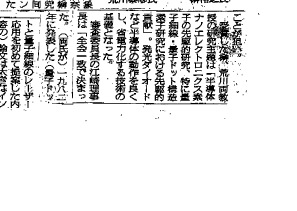 授の研究業績は「半導体
ナノエレクトロニクス素
子の先駆的研究、特に量
子細線・量子ドット構造
素子研究における先駆的
貢献」。発光ダイオード
など半導体の動作を良く
し、省電力化する技術の
基礎となった。
審査委員長の江崎理事
長は「全会一致で決まっ
た。(両氏が)一九八二
年に発表した(量子ドッ
トと量子細線のレーザー
応用を初めて提案した内
容の)論文は大きなイン